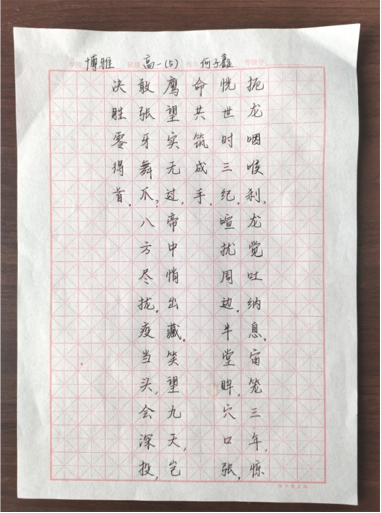 博雅 高一(5)
扼龙咽喉刹,龙觉吐纳息,宙笼三年,惊
恍世时三纪,喧扰周边,牛堂眸穴口张,
命共筑成手,
鹰望实无过,帝中悄出藏,笑望九天,岂
敢张牙舞爪,八方尽拢,疫当头,会深投,
决胜零得首,